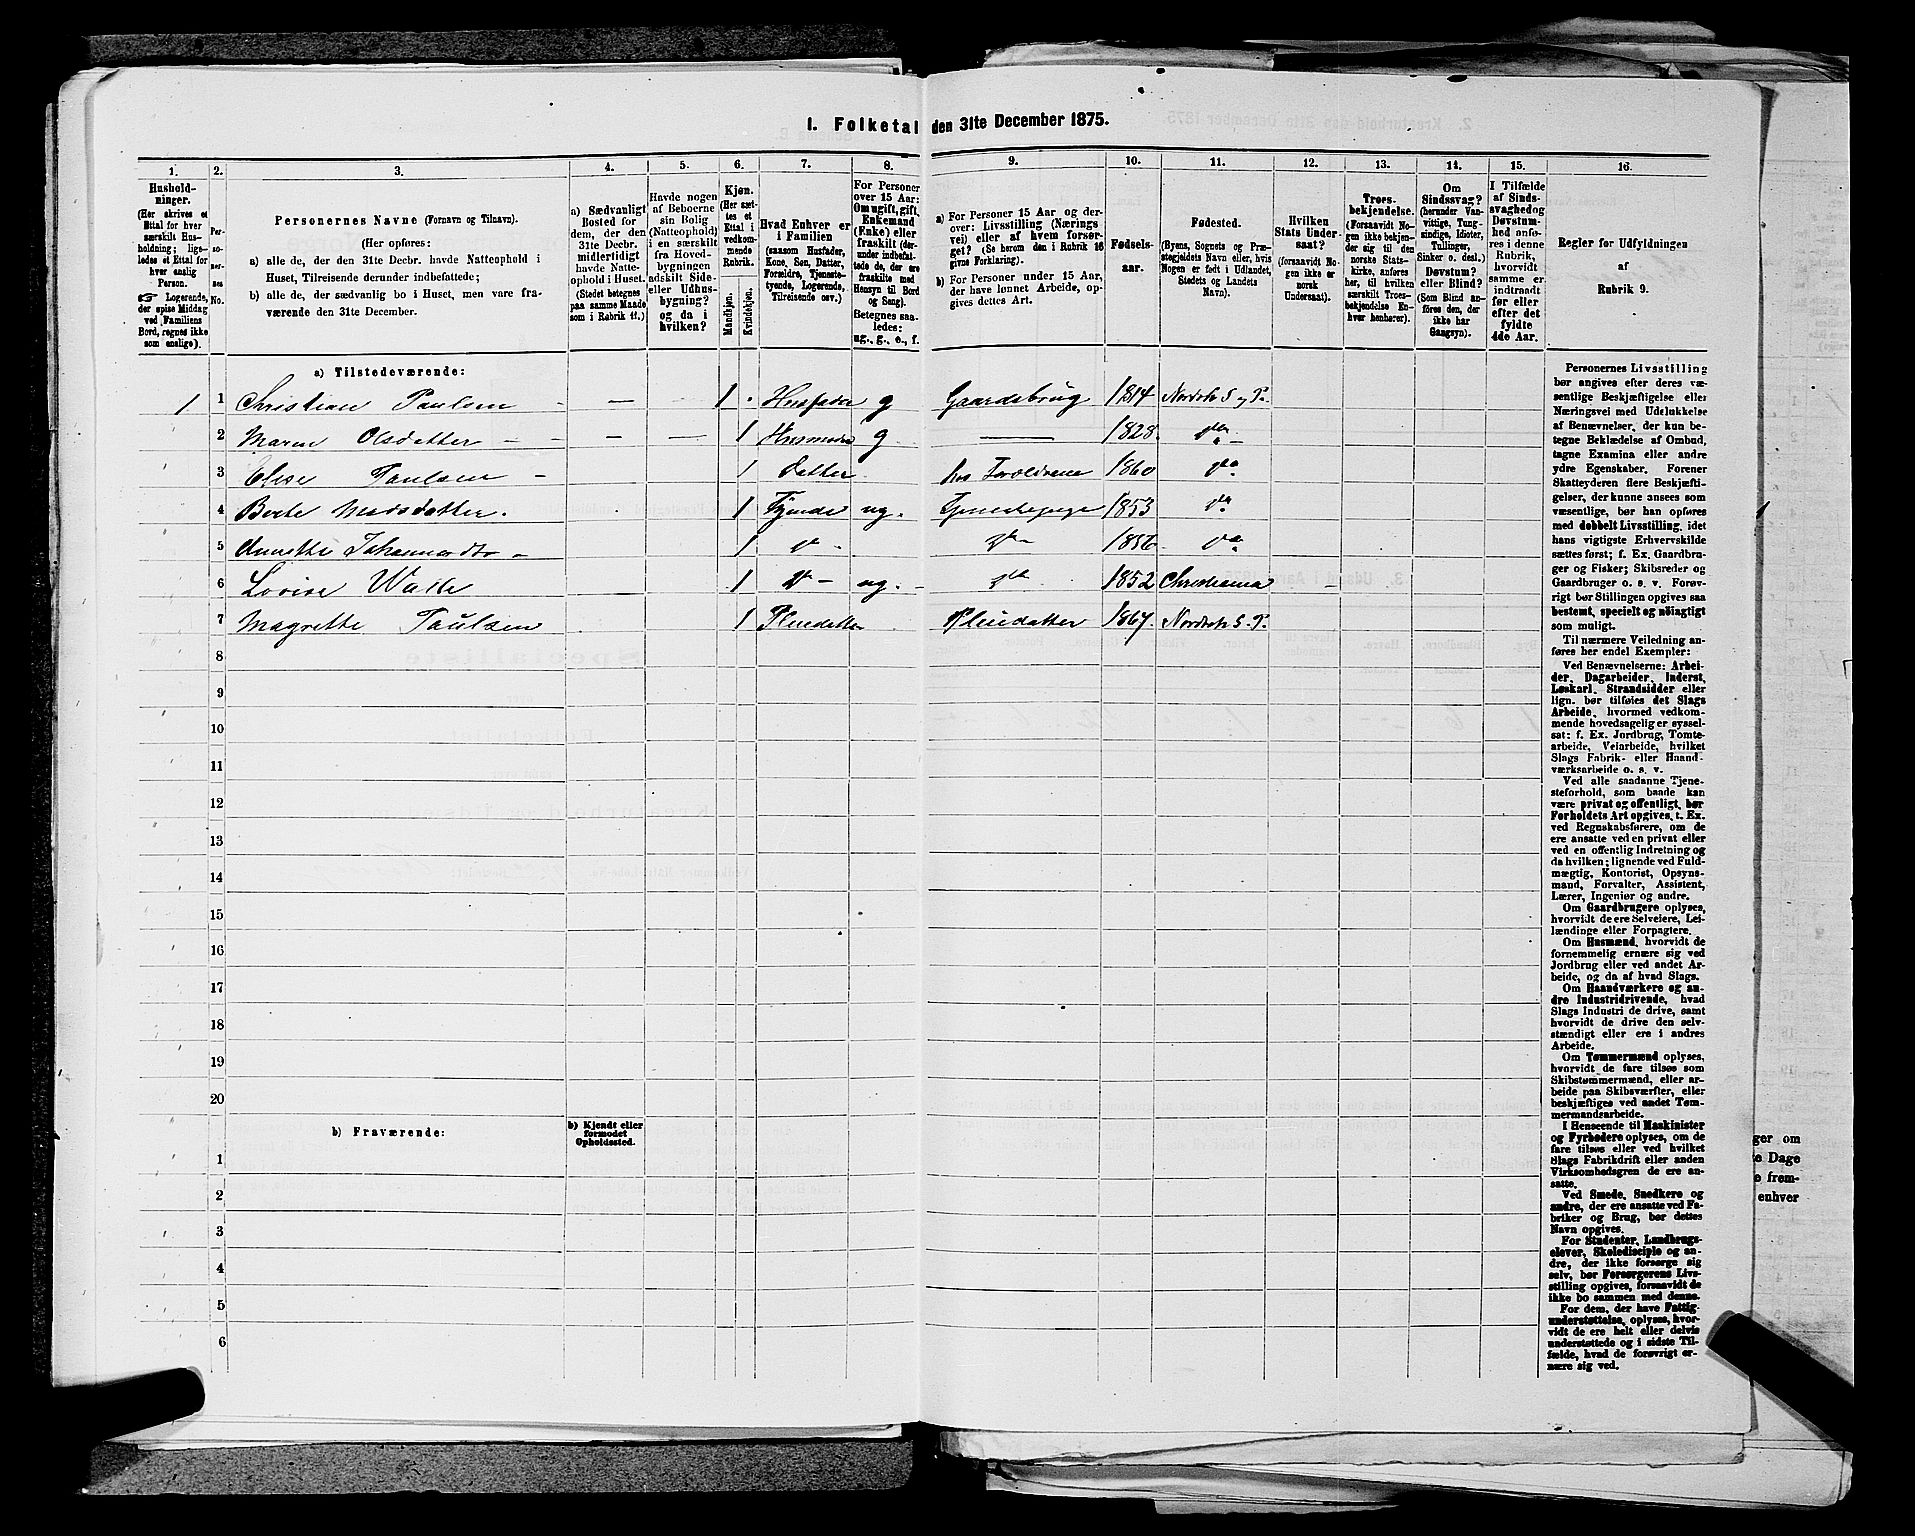 1. Folketal den 31te December 1875.
1. 2. 3. 4. 5. 6. 7. 8. 9. 10. 11. 12. 13. 14. 15. 16.
Hushold-
ninger.
(Her skrives et
Ettal for hver
særskilt Hus-
holdning; lige-
ledes et Ettal for
hver enslig
Person.
Logerende,
der spise Middag
ved Familiens
Bord, regnes ikke
som enslige).
Per-
so-
ner-
nes
No.
Personernes Navne (Fornavn og Tilnavn).
(Her opføres:
a) alle de, der den 31te Decbr. havde Natteophold i
Huset, Tilreisende derunder indbefattede;
b) alle de, der sædvanlig bo i Huset, men vare fra-
værende den 31te December.
a) Sædvanligt
Bosted for
dem, der den
31te Decbr.
midlertidigt
havde Natte-
ophold i Huset.
(Stedet betegnes
paa samme Maade
som i Rubrik 11.)
Havde nogen
af Beboerne
sin Bolig
(Natteophold)
i en særskilt
fra Hoved-
bygningen
adskilt Side-
eller Udhus-
bygning?
og da i
hvilken?
Kjøn.
(Her sæt-
tes et
Ettal i
vedkom-
mende
Rubrik.
Mandkjøn.
Kvindekjøn.
Hvad Enhver er
i Familien
(saasom Husfader,
Kone, Søn, Datter,
Forældre, Tjeneste-
tyende, Logerende,
Tilreisende osv.)
For Personer
over 15 Aar:
Om ugift, gift,
Enkemand
(Enke) eller
fraskilt (der-
under indbefat-
tede de, der ere
fraskilte med
Hensyn til Bord
og Seng).
Betegnes saa-
ledes:
ug., g., e., f.
a) For Personer 15 Aar og der-
over: Livsstilling (Nærings
vei) eller af hvem forsør-
get? (Se herom den i Rubrik 16
givne Forklaring).
b) For Personer under 15 Aar,
der have lønnet Arbeide, op-
gives dettes Art.
Fødsels-
aar.
Fødested.
(Byens, Sognets og Præ-
stegjeldets Navn eller, hvis
Nogen er født i Udlandet,
Stedets og Landets
Navn).
Hvilken
Stats Under-
saat?
(forsaavidt No-
gen ikke er
norsk
Undersaat).
Troes-
bekjendelse.
(Forsaavidt No-
gen ikke bekjen-
der sig til den
norske Stats-
kirke, anføres
her, til hvilken
særskilt Troes-
bekjendelse En-
hver henhører).
Om
Sindssvag?
(herunder Van-
vittige, Tung-
sindige, Idioter,
Tullinger,
Sinker o. desl.)
Døvstum?
eller Blind?
(Som Blind an-
føres den, der
ikke har
Gangsyn).
I Tilfælde
af Sinds-
svaghed og
Døvstum-
hed anfø-
res i denne
Rubrik,
hvorvidt
samme er
indtraadt
før eller
efter det
fyldte
4de Aar.
Regler for Udfyldningen
af
Rubrik 9.
a) Tilstedeværende:
1 1 Christian Paulsen — — 1 Husfader g Gaardsbrug 1814
2 Maren Olsdatter — — — — 1 Husmoder g — 1828
3 Elise Paulsen — 1 Datter Forældrene 1860
4 Berte Madsdatter. 1 ug. 1853
5 1 1856
6 Lovise Walle 1 ug. 1852 Christiania
7 Magrette Paulsen 1 Pleiedatter Pleiedatter 1867.
8
9
10
11
12
13
14
15
16
17
18
19
20
b) Fraværende:
b) Kjendt eller
formodet
Opholdssted.
1
2
3
4
5
6
Personernes Livsstilling
bør angives efter deres væ-
sentlige Beskjæftigelse eller
Næringsvei med Udelukkelse
af Benævnelser, der kun be-
tegne Beklædelse af Ombud,
tagne Examina eller andre
ydre Egenskaber. Forener
Skatteyderen flere Beskjæfti-
gelser, der kunne ansees som
væsentlige, bør han opføres
med dobbelt Livsstilling, idet
hans vigtigste Erhvervskilde
sættes først; f. Ex. Gaardbru-
ger og Fisker; Skibsreder og
Gaardbruger o. s. v. Forøv-
rigt bør Stillingen opgives saa
bestemt, specielt og nøiagtigt
som muligt.
Til nærmere Veiledning an-
føres her endel Exempler:
Ved Benævnelserne: Arbei-
der, Dagarbeider, Inderst,
Løskarl, Strandsidder eller
lign. bør tilføies det Slags
Arbeide, hvormed vedkom-
mende hovedsagelig er syssel-
sat: f. Ex. Jordbrug, Tomte-
arbeide, Veiarbeide, hvilket
Slags Fabrik- eller Haand-
værksarbeide o. s. v.
Ved alle saadanne Tjene-
steforhold, som baade kan
være privat og offentligt, bør
Forholdets Art opgives, t. Ex.
ved Regnskabsførere, om de
ere ansatte ved en privat eller
ved en offentlig Indretning og
da hvilken; lignende ved Fuld-
mægtig, Kontorist, Opsyns-
mand, Forvalter, Assistent,
Lærer, Ingeniør og andre.
Om Gaardbrugere oplyses,
hvorvidt de ere Selveiere, Lei-
lændinge eller Forpagtere.
Om Husmænd, hvorvidt de
fornemmelig ernære sig ved
Jordbrug eller ved andet Ar-
beide, og da af hvad Slags.
Om Haandværkere og an-
dre Industridrivende, hvad
Slags Industri de drive, samt
hvorvidt de drive den selv-
stændigt eller ere i andres
Arbeide.
Om Tømmermænd oplyses,
hvorvidt de fare tilsøs som
Skibstømmermænd, eller ar-
beide paa Skibsværfter, eller
beskjæftiges ved andet Tøm-
mermandsarbeide.
I Henseende til Maskinister
og Fyrbødere oplyses, om de
fare tilsøs eller ved hvilket
Slags Fabrikdrift eller anden
Virksomhedsgren de ere an-
satte.
Ved Smede, Snedkere og
andre, der ere ansatte ved Fa-
briker og Brug, bør dettes
Navn opgives.
For Studenter, Landbrugs-
elever, Skoledisciple og an-
dre, der ikke forsørge sig
selv, bør Forsørgerens Livs-
stilling opgives, forsaavidt de
ikke bo sammen med denne.
For dem, der have Fattig-
understøttelse, oplyses, hvor-
vidt de ere helt eller delvis
understøttede og i sidste Til-
fælde, hvad de forøvrigt er-
nære sig ved.
ger om
Dage
frem-
enhver